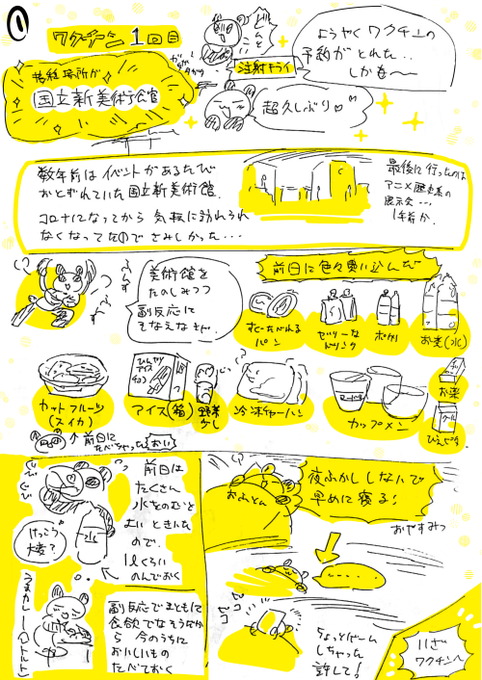 ①
ワクチン1回目
ガタガタ
注射キライ
ようやくワクチンの
予約がとれた‥
しかも〜
接種場所が
国立新美術館
超久しぶり♡
数年前はイベントがあるたび
おとずれていた国立新美術館。
コロナになってから気軽に訪れられ
なくなってたのでさみしかった‥‥
最後に行ったのは
アニメ歴史系の
展示会‥‥
1年前か。
美術館を
たのしみつつ
副反応に
そなえなきゃ。
前日に色々買い込んで
すぐたべれる
パン
ゼリーな
ドリンク
ポカリ
お茶(水)
カットフルーツ
(スイカ)
ひんやり
アイス
チョコ
アイス(箱)
冷凍チャーハン
カップメン
お薬
クール
↑前日に
たべちゃった
おい
前日は
たくさん
水をのむと
よいときいた
ので、
1Lくらい
のんでおく
けっこう
大変?
水
副反応でまともに
食欲でなそうだから
今のうちに
おいしいもの
たべておく
夜ふかししないで
早めに寝る!
おふとん
おやすみっ
ちょっとゲーム
しちゃった
許して!
いざ
ワクチンへ